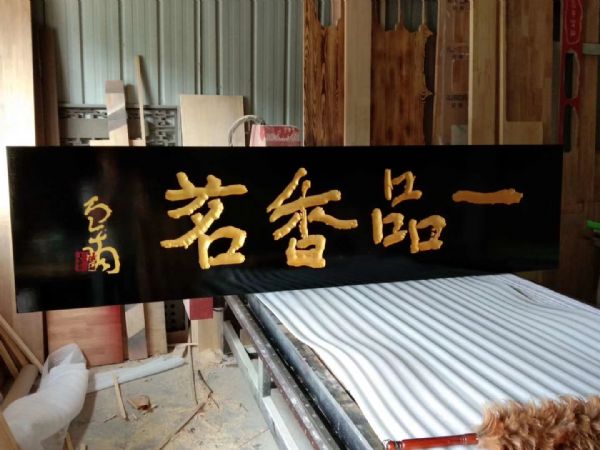 一品香茗